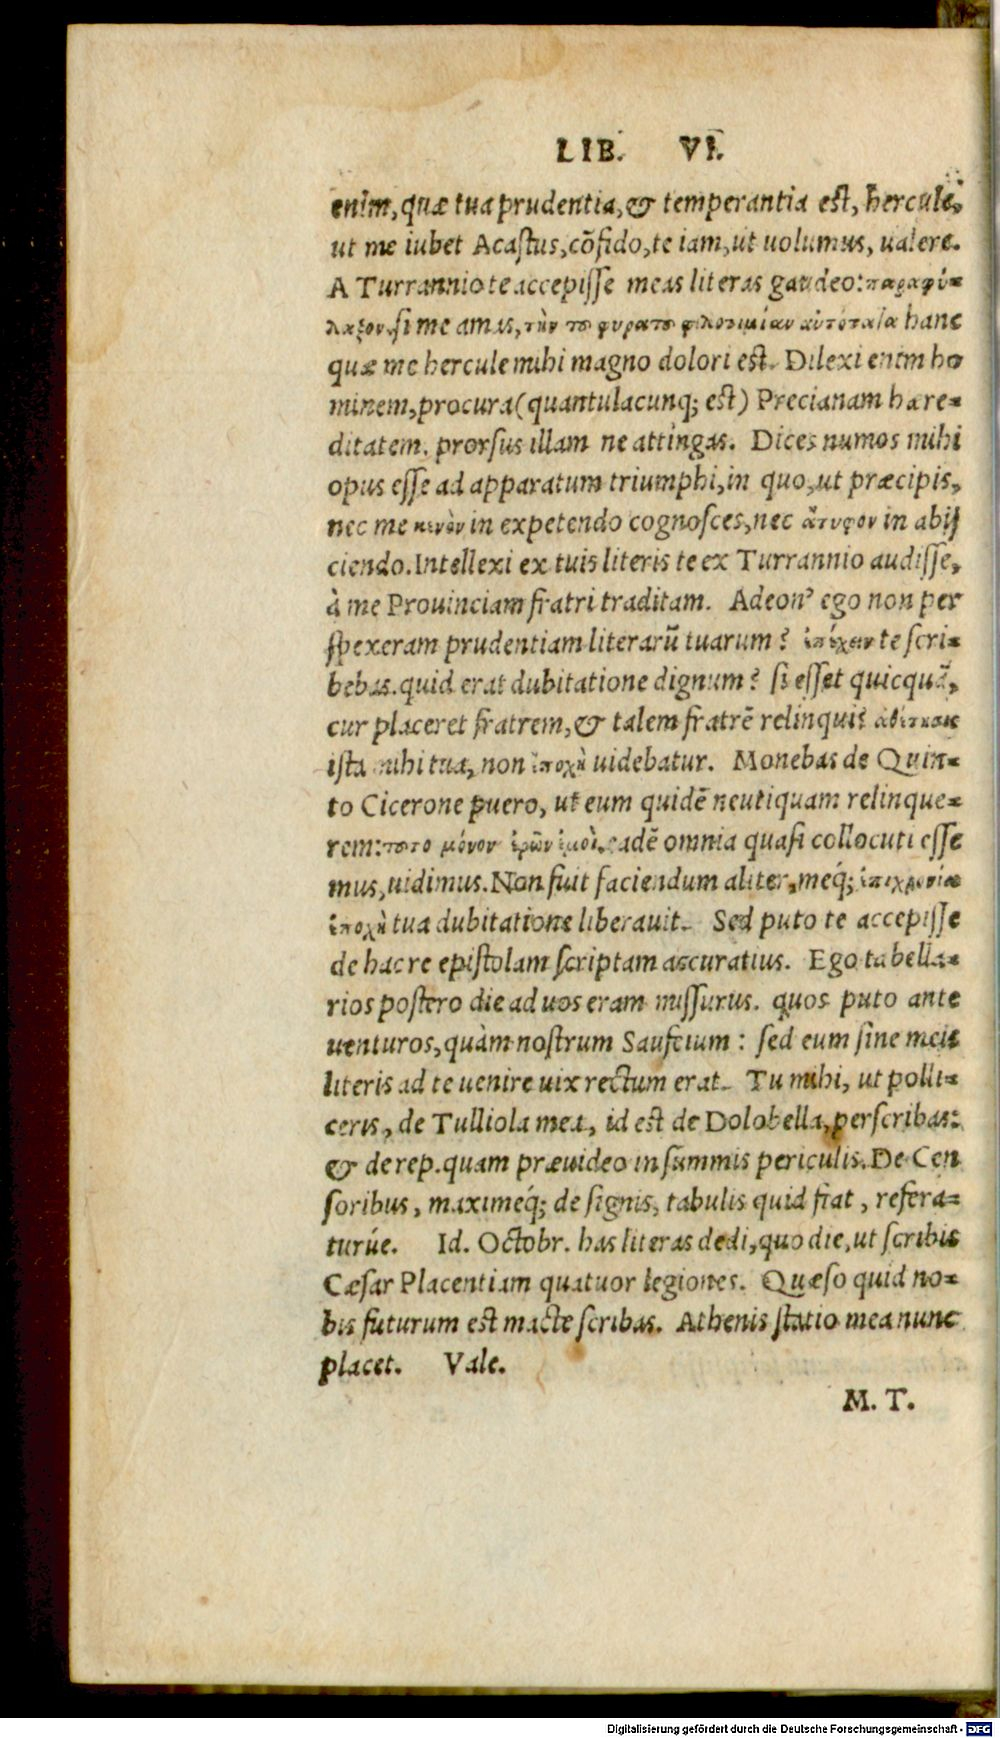 LIB. VI.
enim, quæ tua prudentia, & temperantia est, hercule,
ut me iubet Acastus, cõfido, te iam, ut uolumus, ualere.
A Turrannio te accepisse meas literas gaudeo: παραφύ=
λαξον, si me amas, τὴν τῦ φυρατῦ φιλοτιμίαν αὐτότατα hanc
quæ me hercule mihi magno dolori est. Dilexi enim ho
minem, procura (quantulacunq; est) Precianam hære=
ditatem. prorsus illam ne attingas. Dices numos mihi
opus esse ad apparatum triumphi, in quo, ut præcipis,
nec me κενὸν in expetendo cognosces, nec ἄτυφον in abij
ciendo. Intellexi ex tuis literis te ex Turrannio audisse,
à me Prouinciam fratri traditam. Adeon' ego non per
spexeram prudentiam literarũ tuarum? ἐπέχειν te scri=
bebas. quid erat dubitatione dignum? si esset quicquã,
cur placeret fratrem, & talem fratrẽ relinqui? ἀθέτησις
ista mihi tua, non ἐποχὴ uidebatur. Monebas de Quin=
to Cicerone puero, ut eum quidẽ neutiquam relinque=
rem: τῦτο μόνον ἐρῶν ἐμοὶ. eadẽ omnia quasi collocuti esse
mus, uidimus. Non fuit faciendum aliter, meq́;
ἐποχὴ tua dubitatione liberauit. Sed puto te accepisse
de hac re epistolam scriptam accuratius. Ego tabella=
rios postero die ad uos eram missurus. quos puto ante
uenturos, quàm nostrum Saufeium: sed eum sine meis
literis ad te uenire uix rectum erat. Tu mihi, ut polli=
ceris, de Tulliola mea, id est de Dolobella, perscribas:
& de rep. quam præuideo in summis periculis. De Cen
soribus, maximeq́; de signis, tabulis quid fiat, refera=
turúe. Id. Octobr. has literas dedi, quo die, ut scribis
Cæsar Placentiam quatuor legiones. Quæso quid no=
bis futurum est macte scribas. Athenis statio mea nunc
placet. Vale.
M. T.
Digitalisierung gefördert durch die Deutsche Forschungsgemeinschaft - DFG